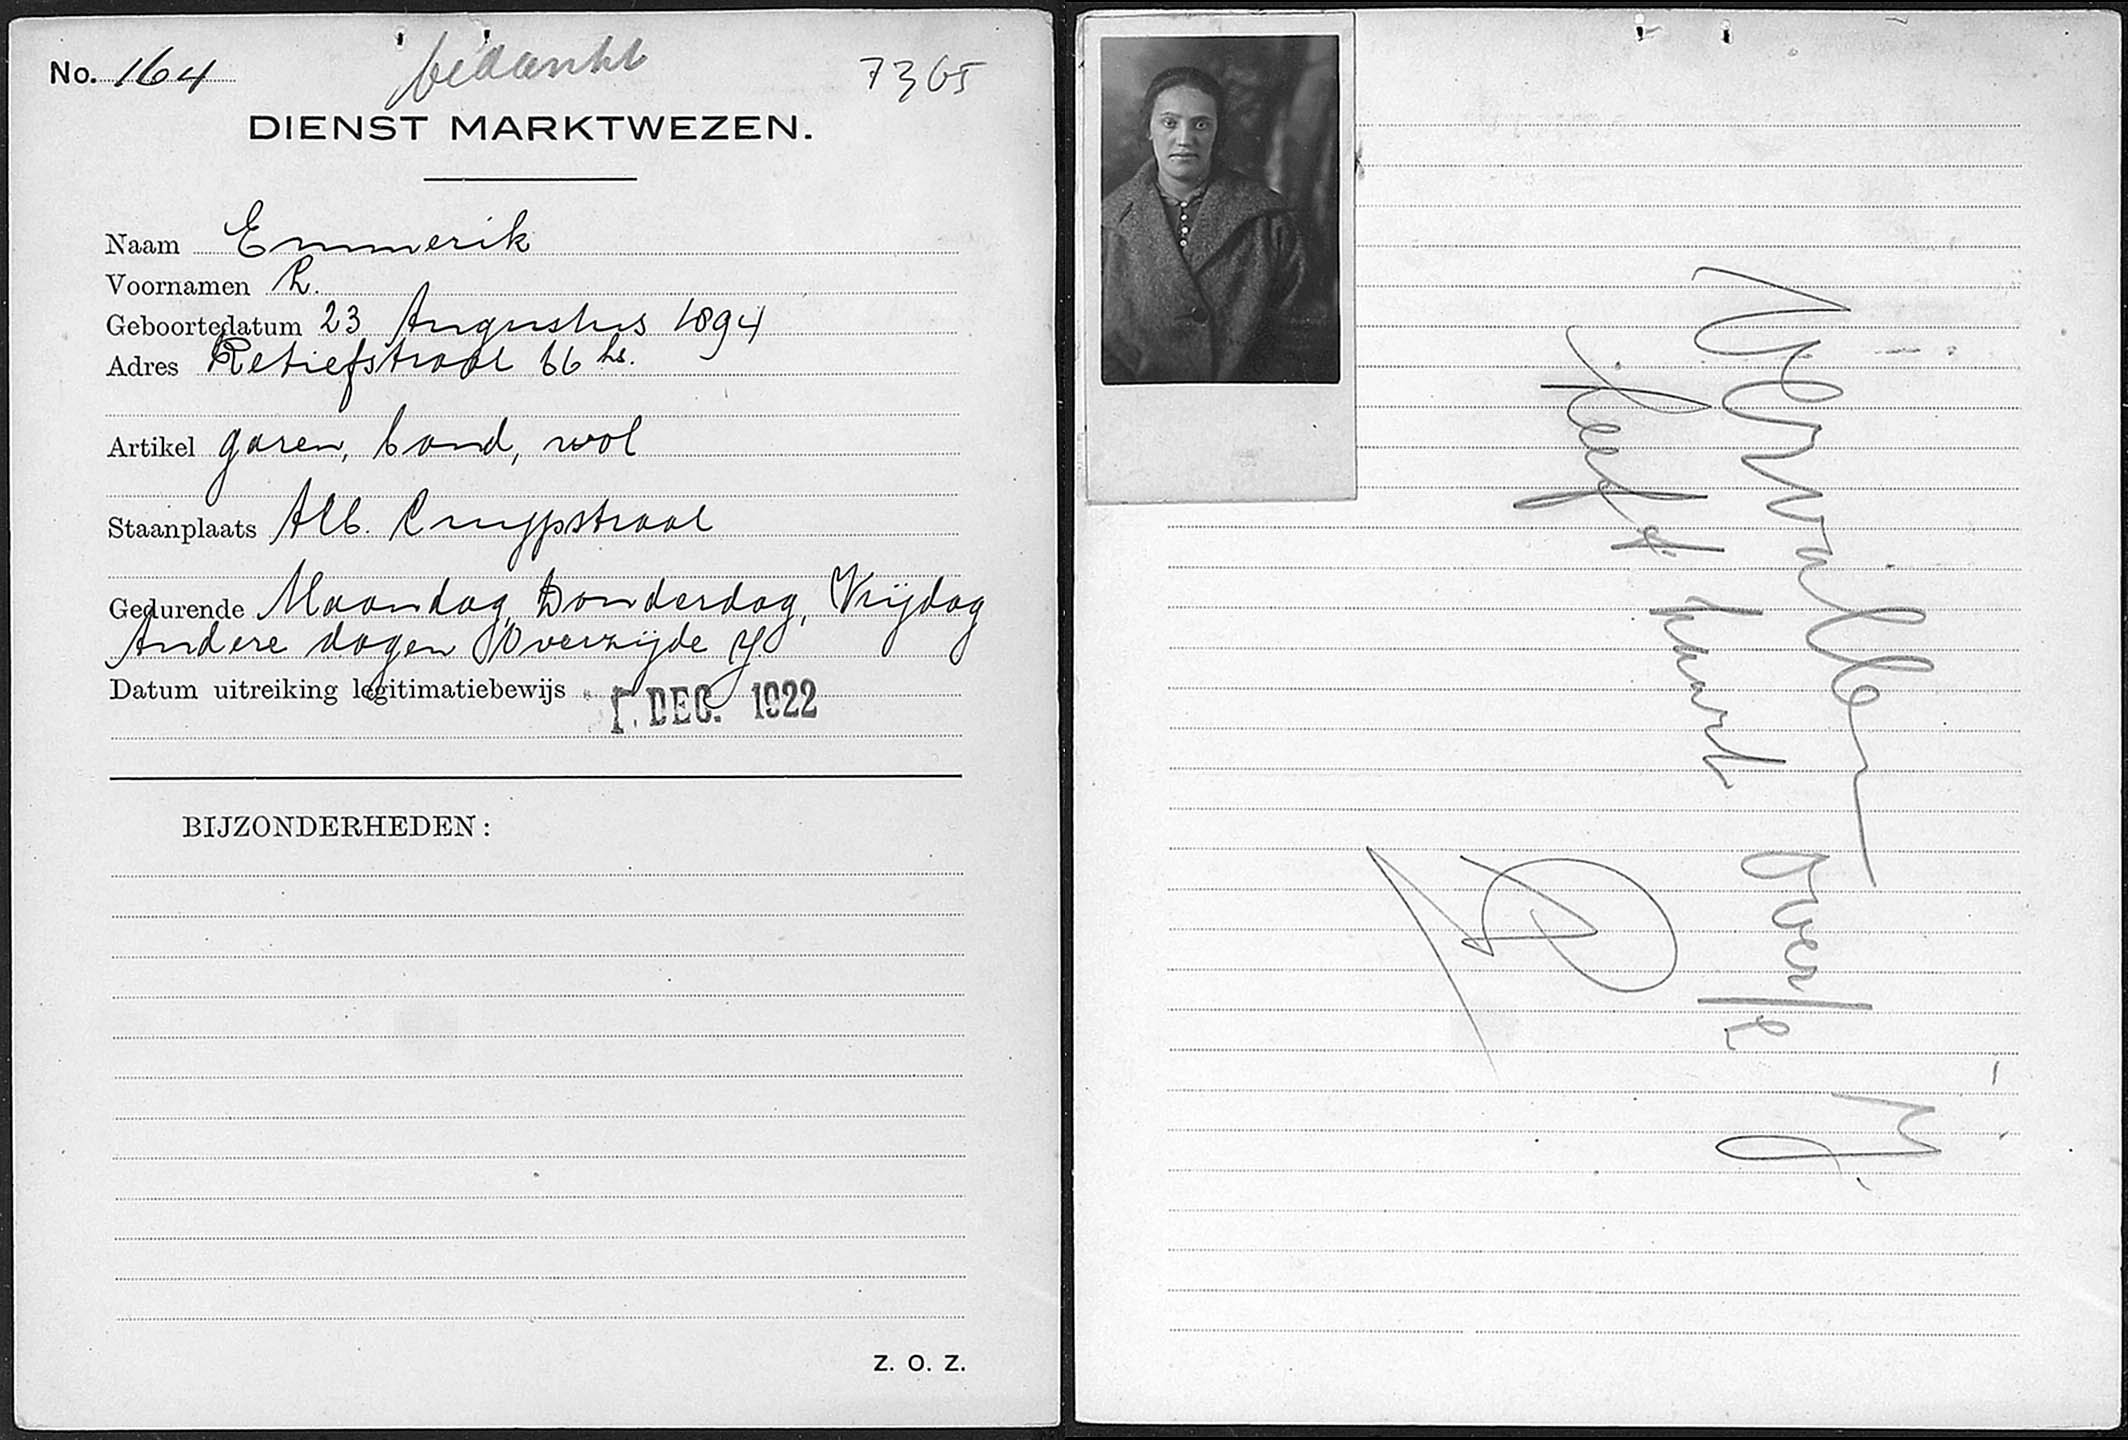 No. 164
bedankt
7365
DIENST MARKTWEZEN.
Naam Emmerik
Voornamen R.
Geboortedatum 23 Augustus 1894
Adres Retiefstraat 66 hs.
Artikel garen, band, wol
Staanplaats Alb. Cuypstraat
Gedurende Maandag, Donderdag, Vrijdag
Andere dagen Overzijde Y
Datum uitreiking legitimatiebewijs 1. DEC. 1922
BIJZONDERHEDEN:
Z. O. Z.
Vervallen
heeft kaart